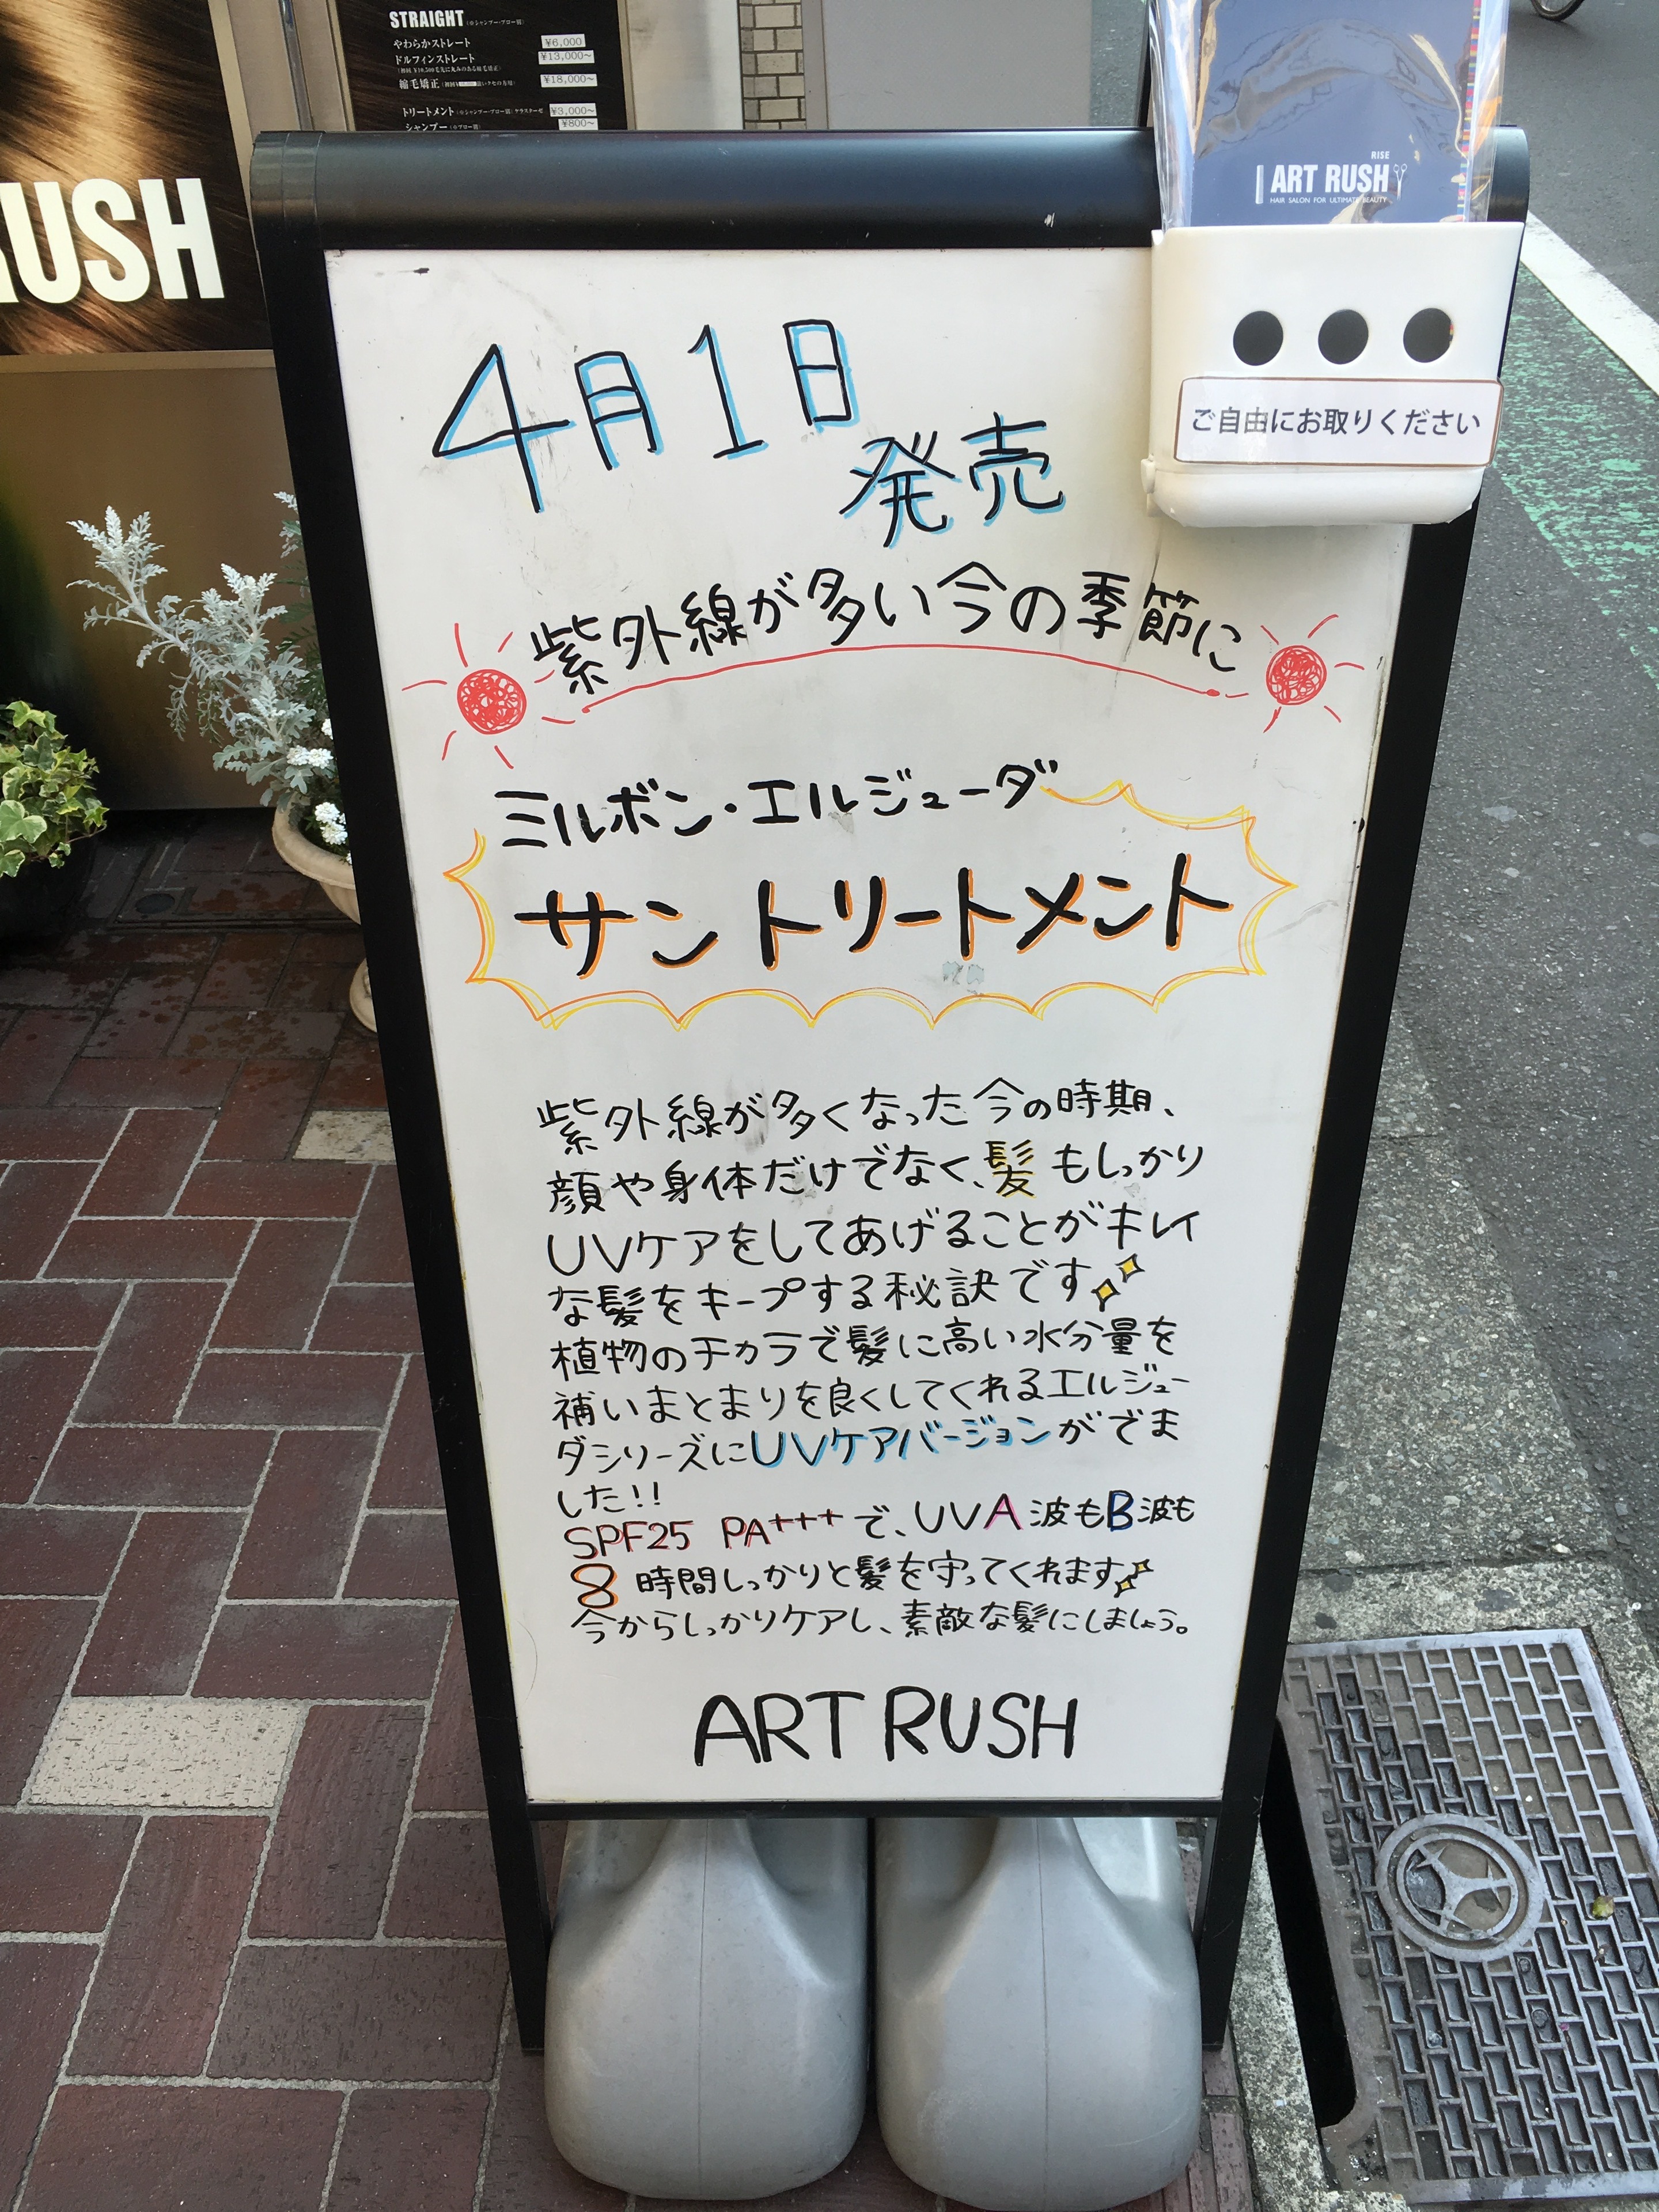 STRAIGHT
やわらかストレート ¥6,000
ドルフィンストレート ¥13,000~
縮毛矯正 ¥18,000~
トリートメント ¥3,000~
シャンプー ¥800~
RUSH
RISE
ART RUSH
HAIR SALON FOR ULTIMATE BEAUTY
ご自由にお取りください
4月1日
発売
紫外線が多い今の季節に
ミルボン・エルジューダ
サントリートメント
紫外線が多くなった今の時期、
顔や身体だけでなく、髪もしっかり
UVケアをしてあげることがキレイ
な髪をキープする秘訣です
植物のチカラで髪に高い水分量を
補いまとまりを良くしてくれるエルジュー
ダシリーズにUVケアバージョンがでま
した!!
SPF25 PA+++で、UVA波もB波も
8時間しっかりと髪を守ってくれます
今からしっかりケアし、素敵な髪にしましょう。
ART RUSH